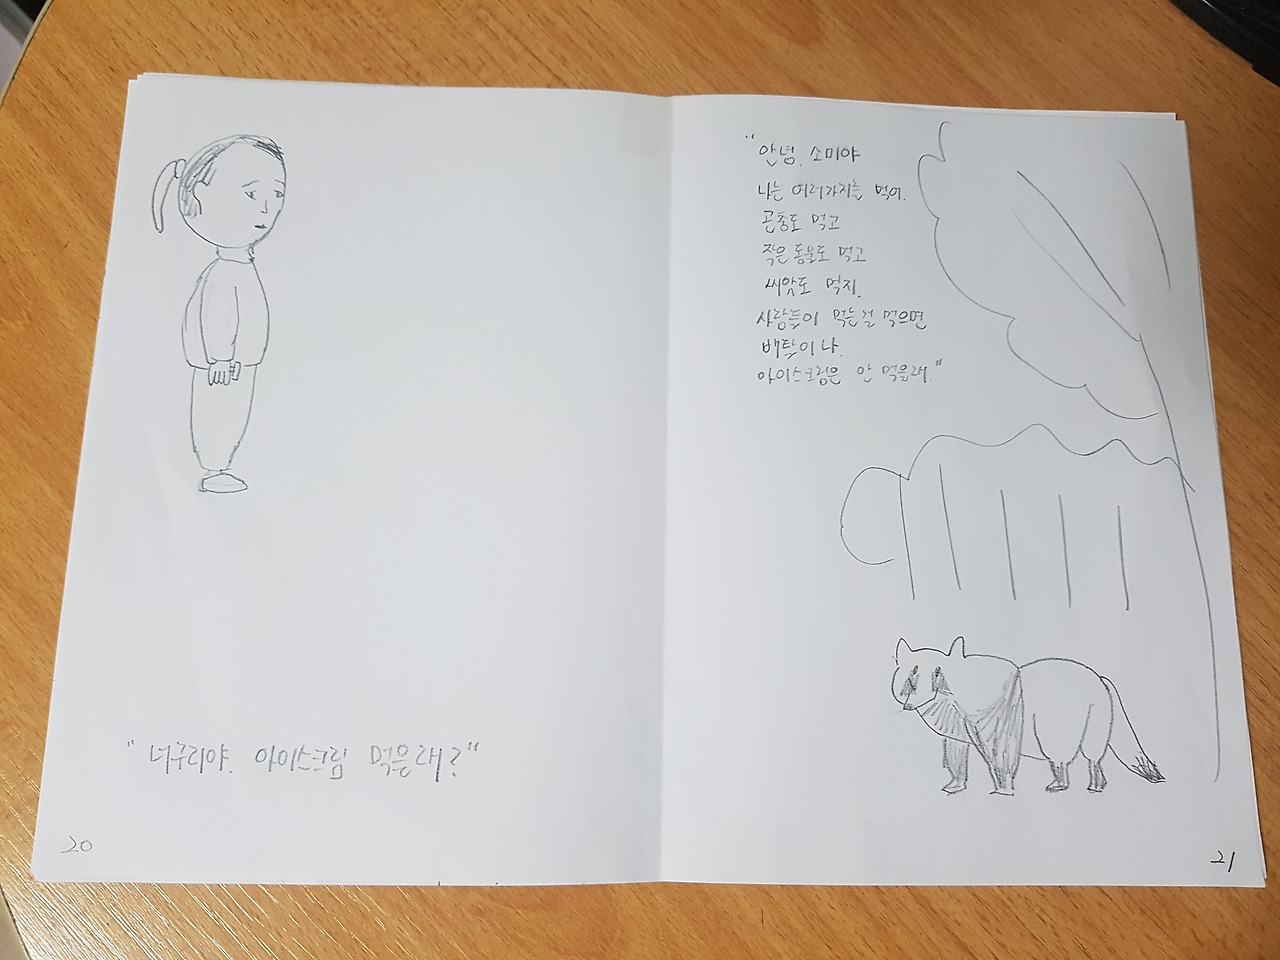 "너구리야. 아이스크림 먹을래?"
20
"안녕. 소미야
나는 여러가지를 먹어.
곤충도 먹고
작은 동물도 먹고
씨앗도 먹지.
사람들이 먹는걸 먹으면
배탈이 나.
아이스크림은 안 먹을래."
21